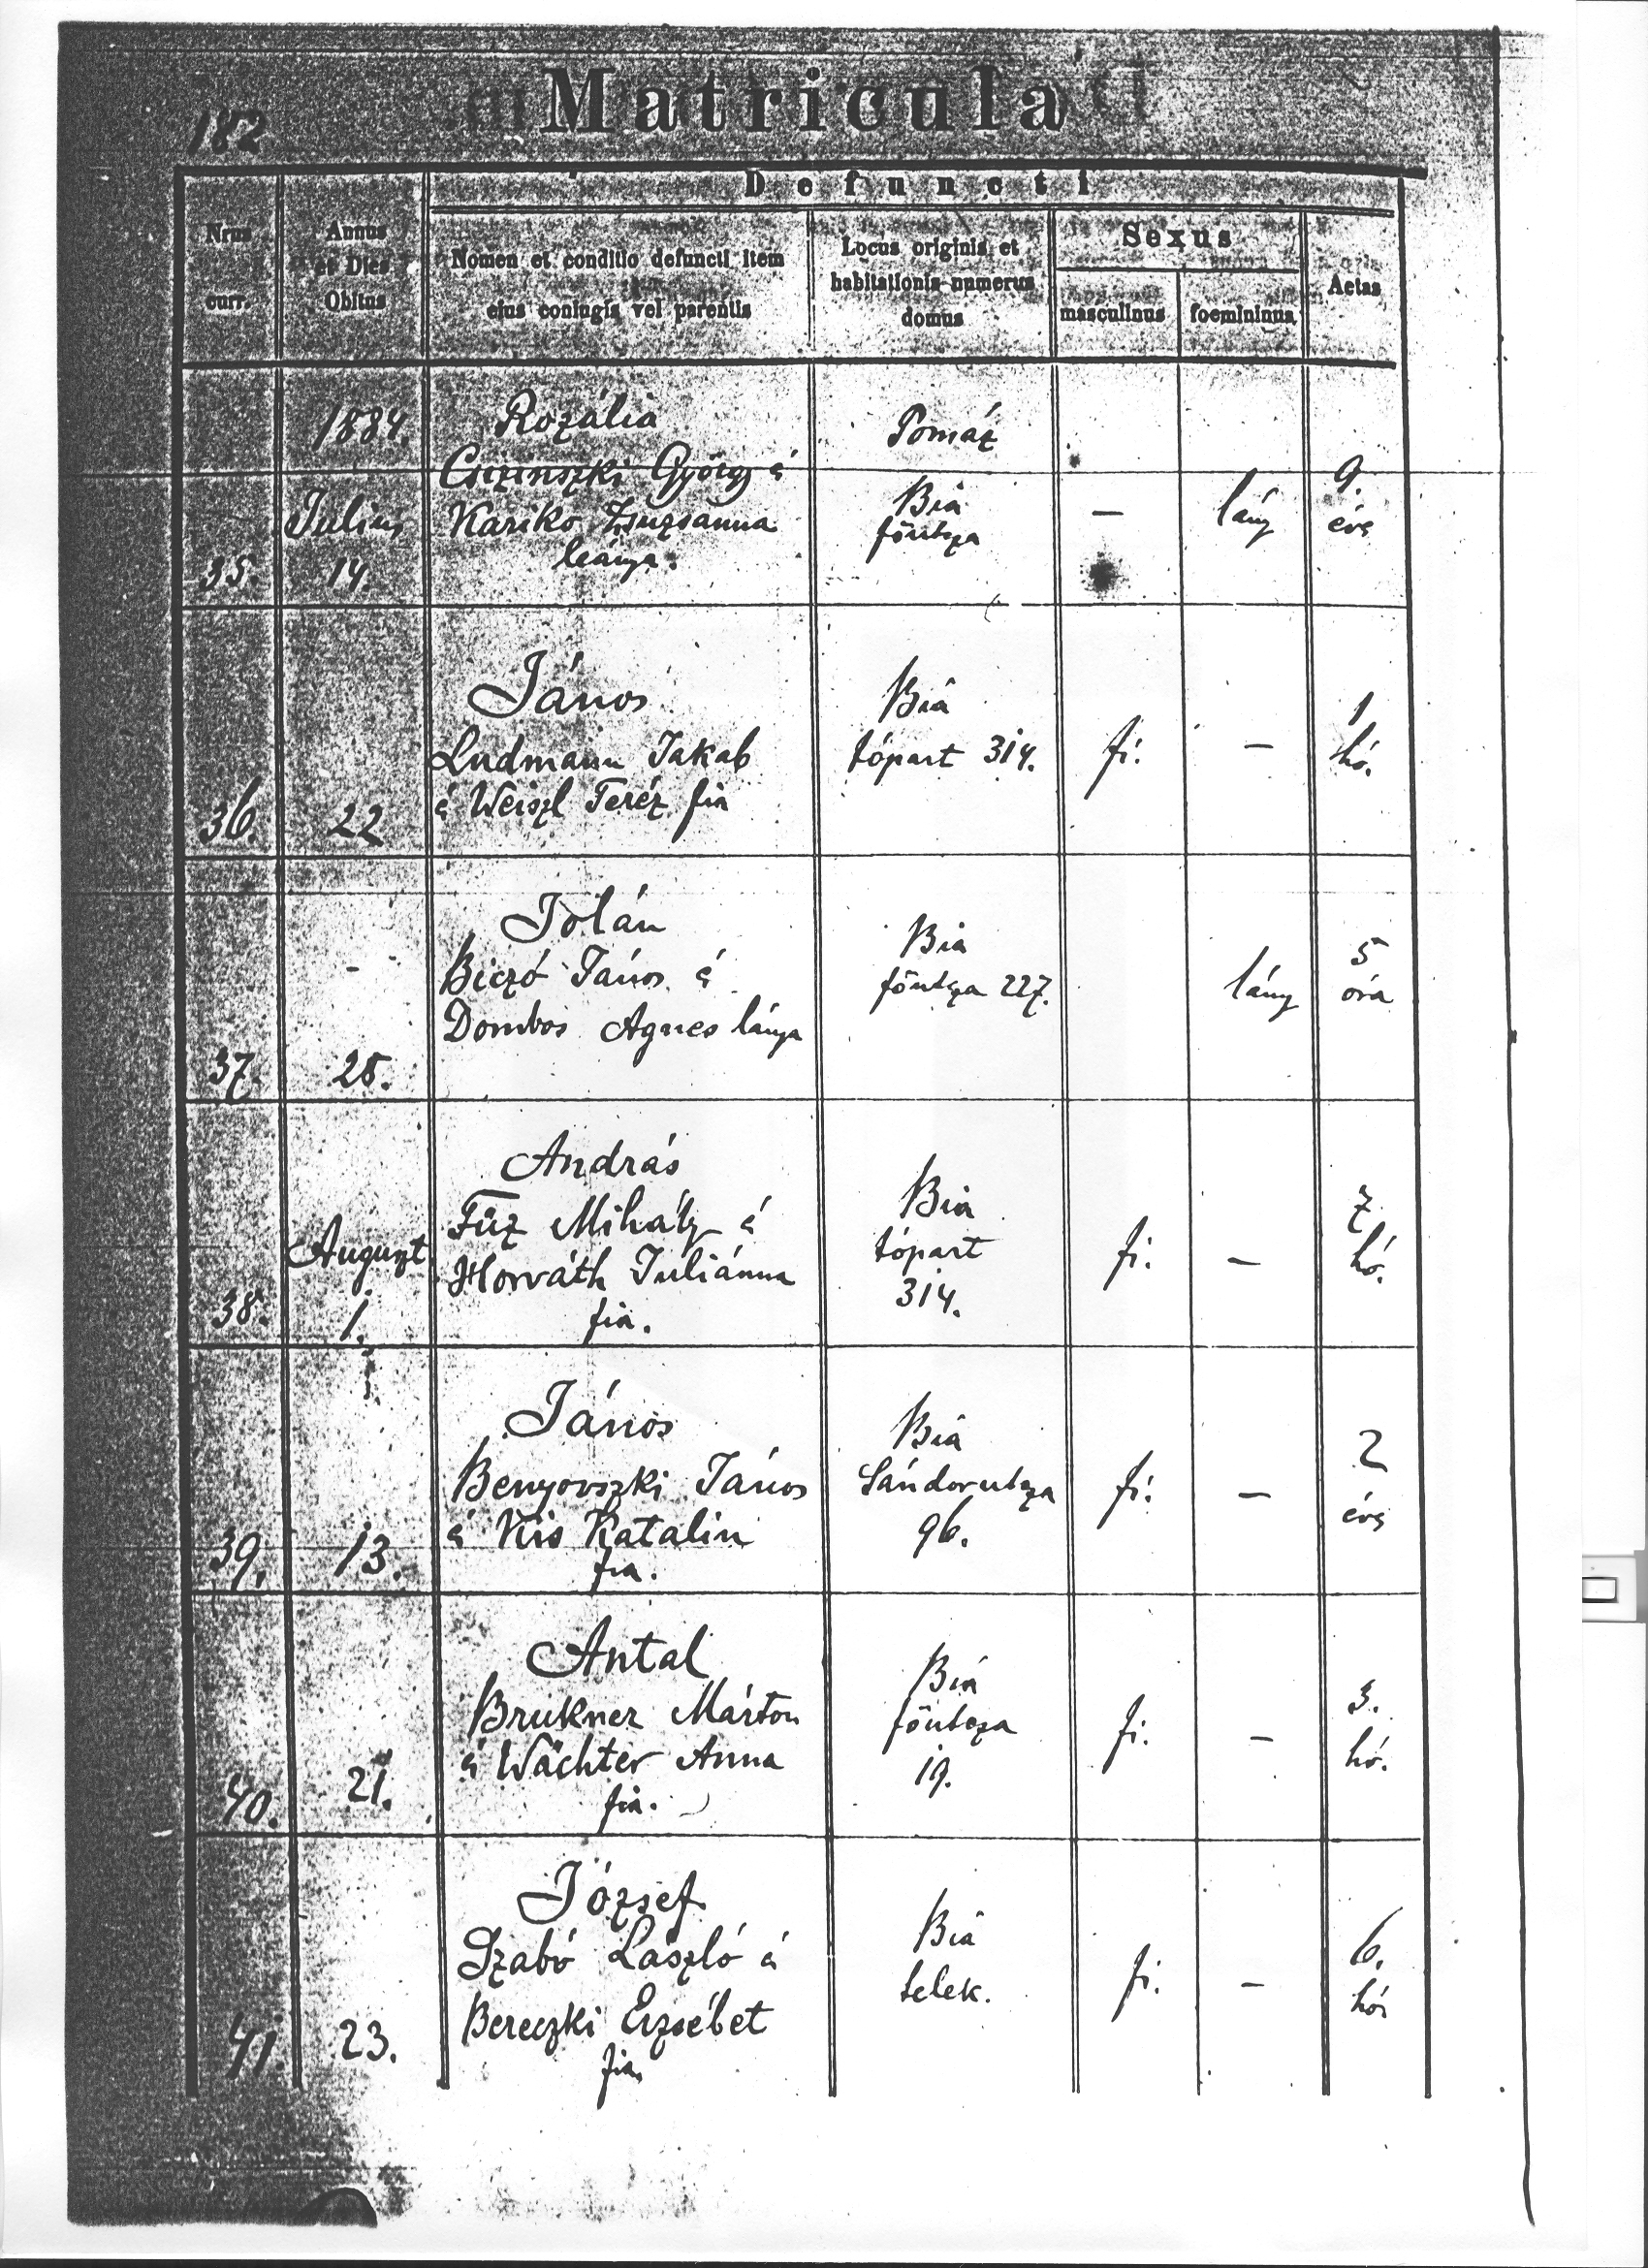 182
Matricula
Defuncti
Nrus curr.
Annus et Dies Obitus
Nomen et conditio defuncti item eius coniugis vel parentis
Locus originis et habitationis numerus domus
Sexus
masculinus
foemininus
Aetas
35.
1884.
Julius
14.
Rozália
György é
Kariko Zsuzsanna
leánya.
Pomáz
Bia
főutcza
—
lány
9.
éves
36.
22
János
Ludmann Jakab
é Weiszl Teréz fia
Bia
tópart 314.
fi.
—
1
hó.
37.
25.
Jolán
Biczó János é
Dombos Agnes lánya
Bia
főutcza 227.
lány
5
óra
38.
Auguszt
1.
András
Füz Mihály é
Horváth Juliánna
fia.
Bia
tópart
314.
fi.
—
7
hó.
39.
13.
János
Benyovszki János
é Kis Katalin
fia.
Bia
Sándorutcza
96.
fi.
—
2
éves
40.
21.
Antal
Brukner Márton
é Wächter Anna
fia.
Bia
főutcza
19.
fi.
—
3.
hó.
41.
23.
József
Szabó László é
Bereczki Erzsébet
fia.
Bia
telek.
fi.
—
6.
hó.